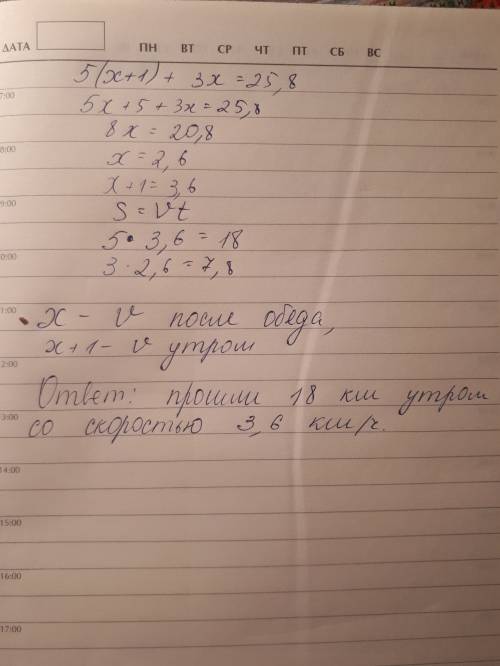 ДАТА
ПН ВТ СР ЧТ ПТ СБ ВС
5(x+1) + 3x = 25,8
7:00
5x + 5 + 3x = 25,8
8x = 20,8
8:00
x = 2,6
x + 1 = 3,6
9:00
S = Vt
5 · 3,6 = 18
0:00
3 · 2,6 = 7,8
1:00
x – V после обеда,
x+1 – V утром
2:00
Ответ: прошли 18 км утром
3:00
со скоростью 3,6 км/ч.
14:00
15:00
16:00
17:00